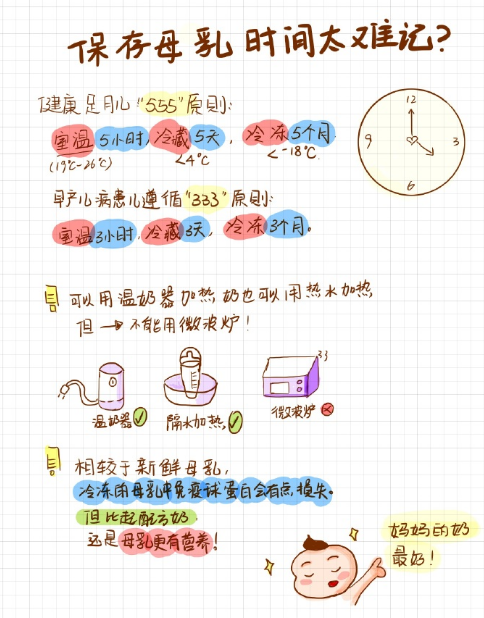 保存母乳时间太难记?
健康足月儿"555"原则:
室温5小时,冷藏5天,冷冻5个月.
(19℃-26℃) <4℃ <-18℃
12
3
6
9
早产儿病患儿遵循"333"原则:
室温3小时,冷藏3天,冷冻3个月。
可以用温奶器加热,奶也可以用热水加热,
但→不能用微波炉!
温奶器 隔水加热 微波炉
相较于新鲜母乳,
冷冻的母乳中免疫球蛋白会有点损失。
但比起配方奶
还是母乳更有营养!
妈妈的奶
最好!